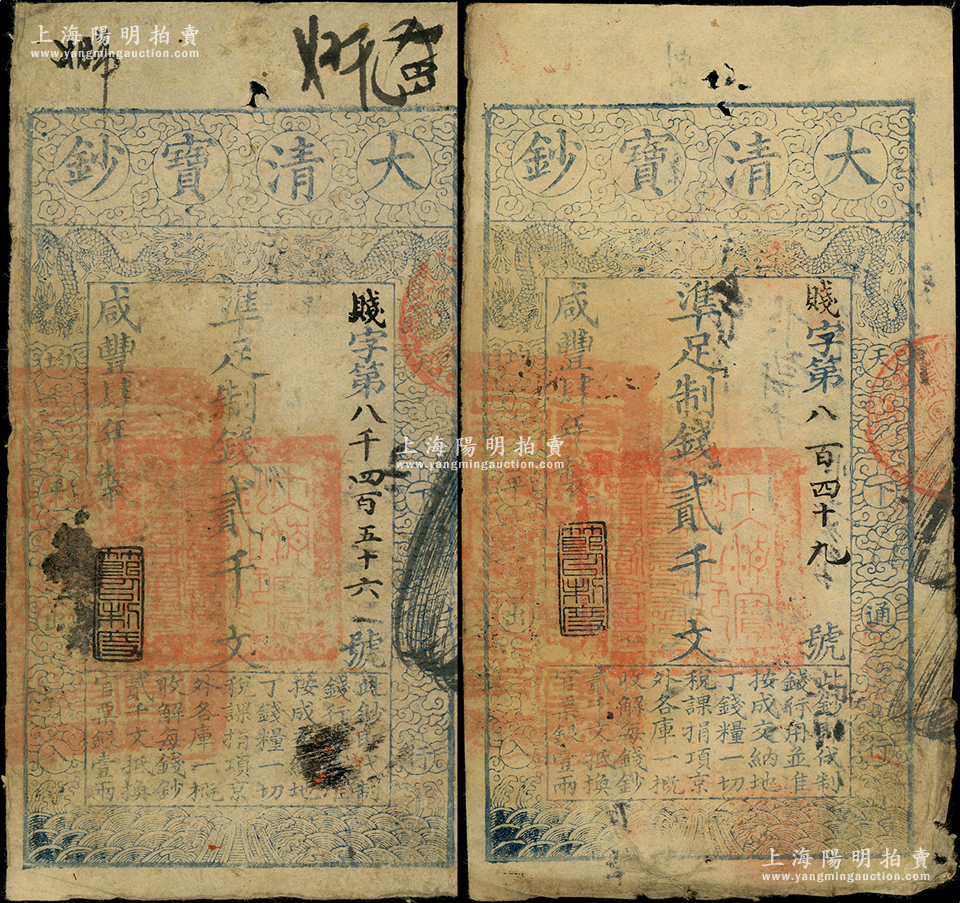 上海陽明拍賣
www.yangmingauction.com
大清寶鈔
賤字第八千四百五十六號
準足制錢貳千文
咸豐肆年製
此鈔即代制
錢行用並准
按成交納地
丁錢糧一切
稅課捐項京
外各庫一概
收解每錢鈔
貳千文抵換
官票銀壹兩
上海陽明拍賣
www.yangmingauction.com
大清寶鈔
賤字第八百四十九號
準足制錢貳千文
咸豐肆年製
天下通行
均平出入
此鈔即代制
錢行用並准
按成交納地
丁錢糧一切
稅課捐項京
外各庫一概
收解每錢鈔
貳千文抵換
官票銀壹兩
上海陽明拍賣
www.yangmingauction.com
上海陽明拍賣
www.yangmingauction.com